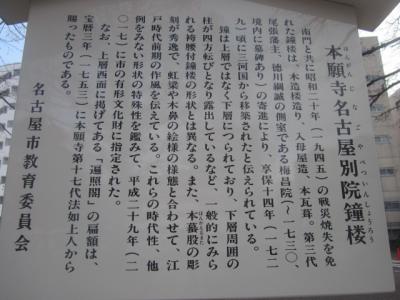 本願寺名古屋別院鐘楼
ほんがんじなごやべついんしょうろう
南門と共に昭和二十年（一九四五）の戦災焼失を免
れた鐘楼は、木造楼造り、入母屋造、本瓦葺。第三代
尾張藩主、徳川綱誠の側室である梅昌院（～一七三〇、
境内に墓碑あり）の寄進により、享保十四年（一七二
九）頃に三河国から移築されたと伝えられている。
鐘は上層ではなく下層につられており、下層周囲の
柱が四方転びとなり露出しているなど、一般的にみら
れる袴腰付鐘楼の形状とは異なる。また、本蟇股の彫
刻が秀逸で、虹梁や木鼻の絵様の様態と合わせて、江
戸時代前期の作風を伝えている。これらの時代性、他
例をみない形状の特殊性を鑑みて、平成二十九年（二
〇一七）に市の有形文化財に指定された。
なお、上層西面に掲げてある「遍照閣」の扁額は、
宝暦三年（一七五三）に本願寺第十七代法如上人から
賜ったものである。
名古屋市教育委員会